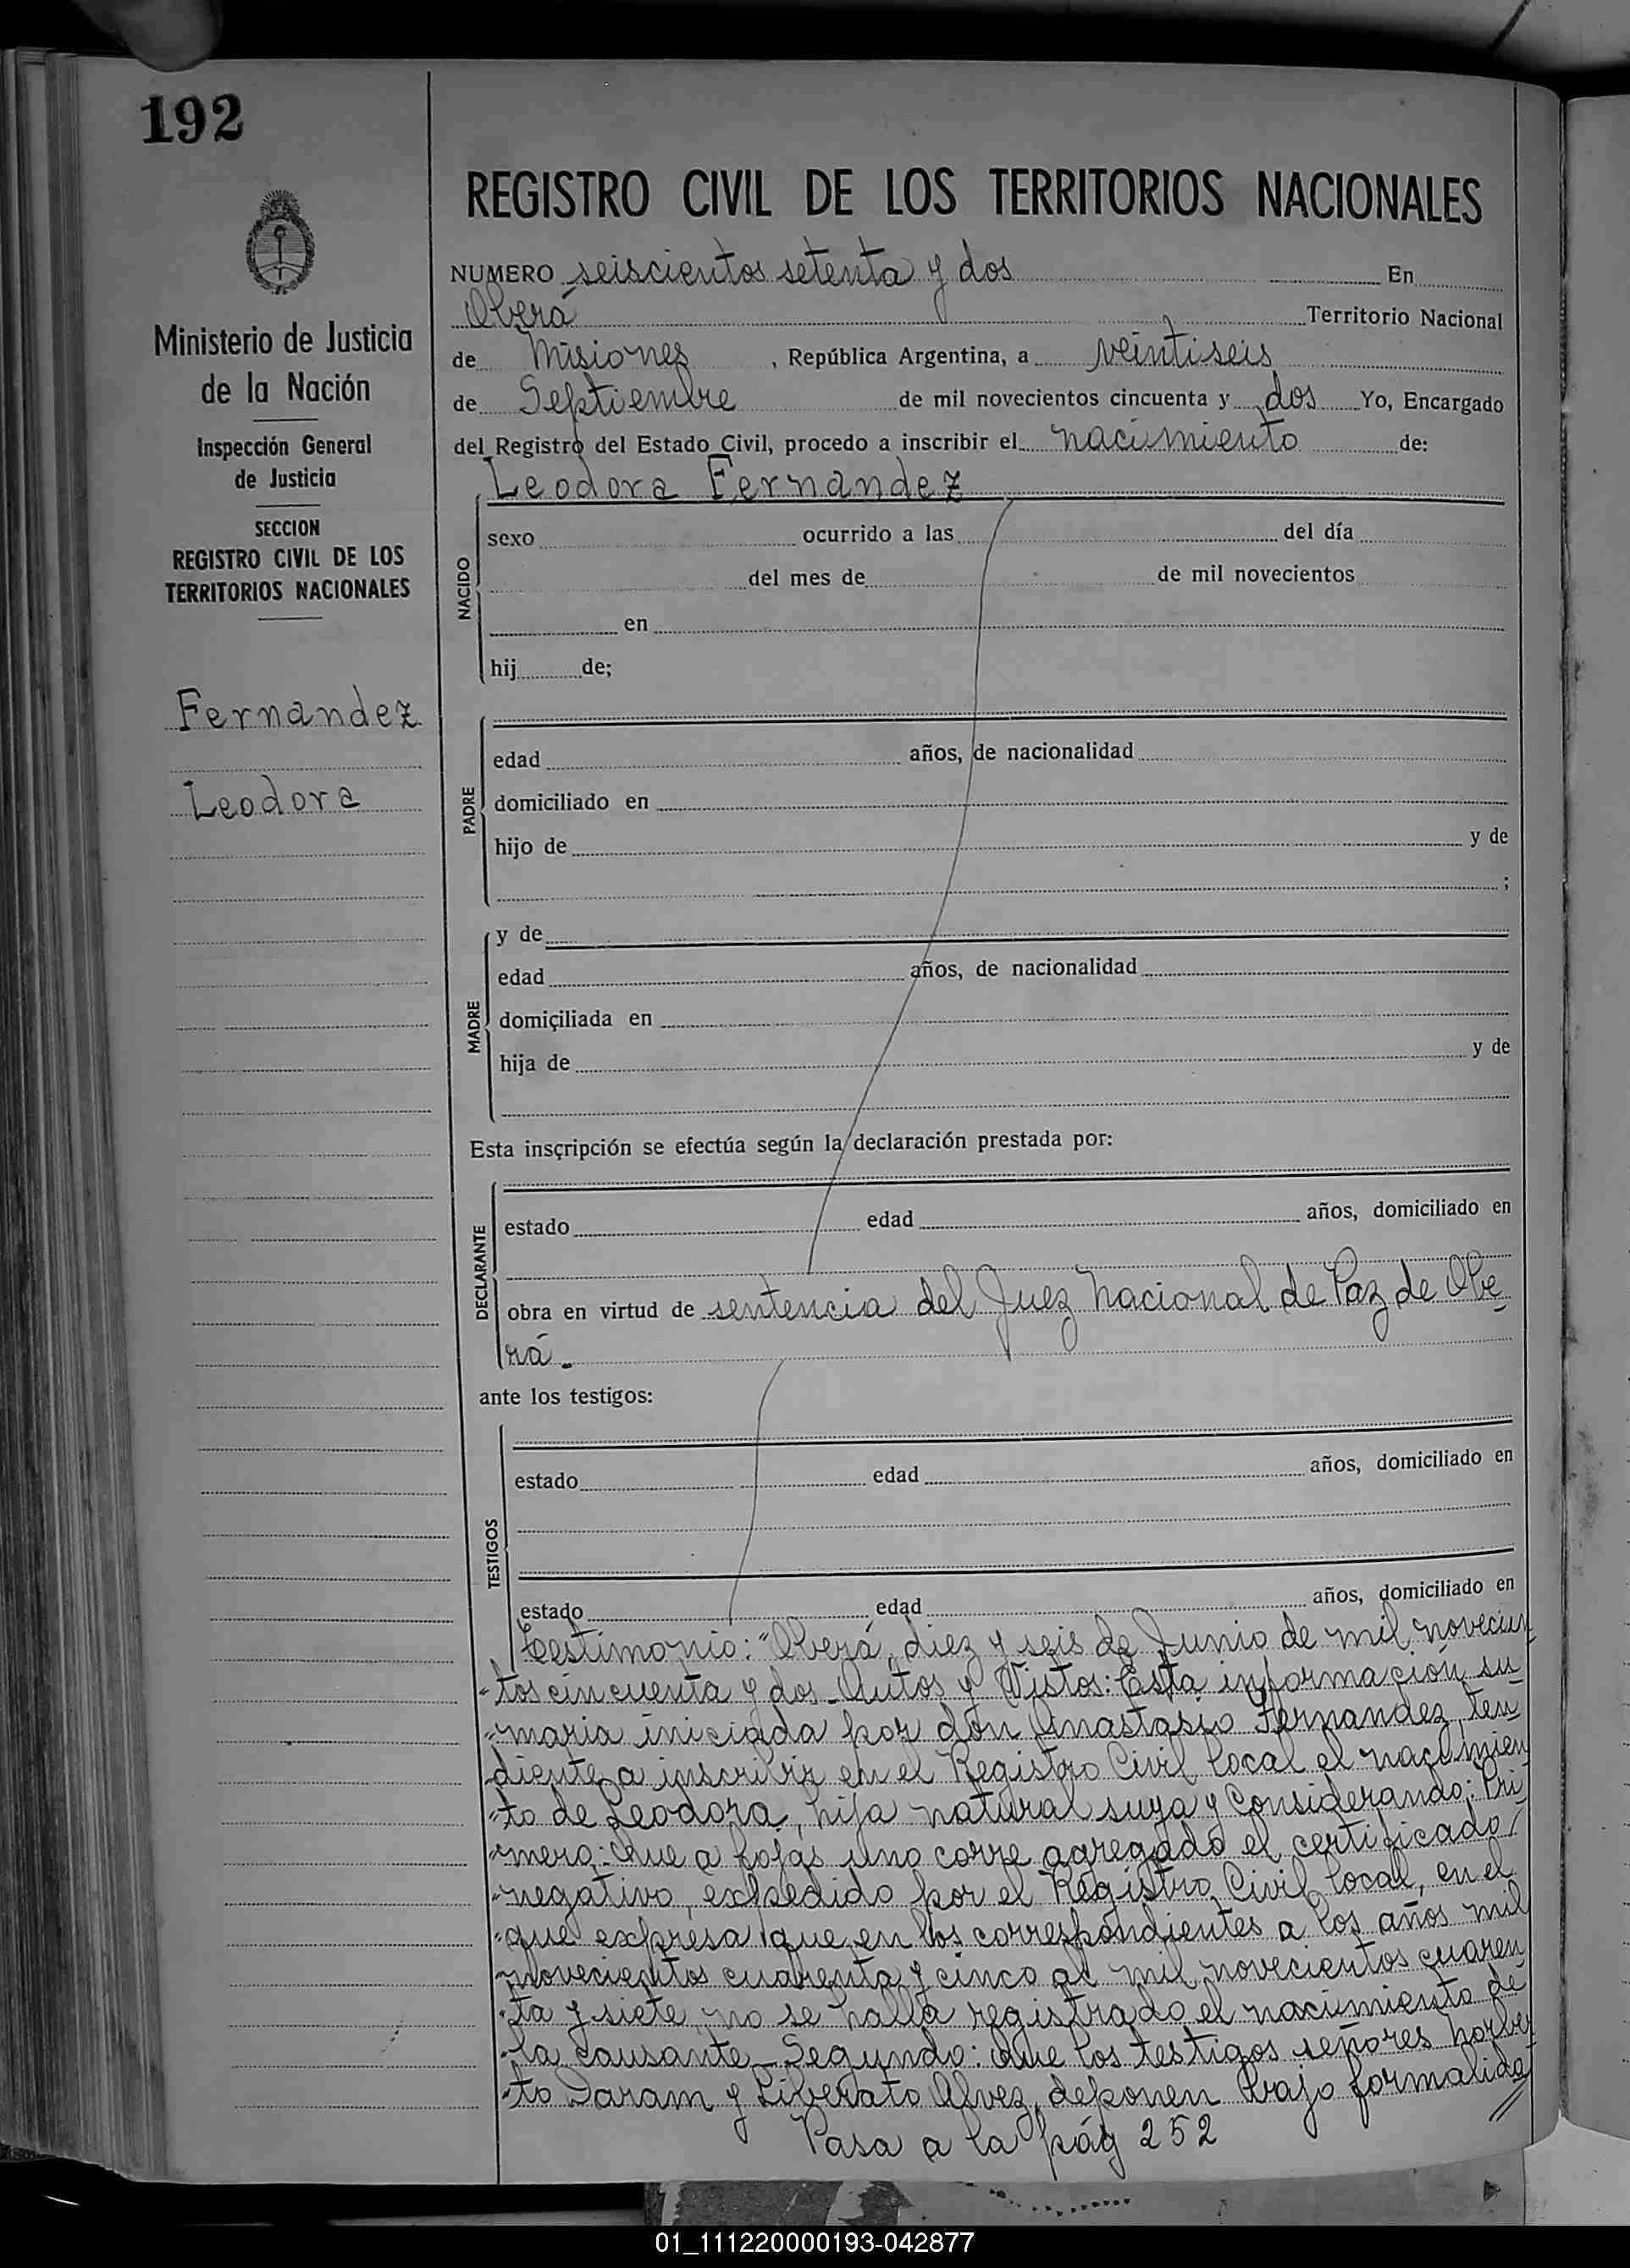 192
Ministerio de Justicia
de la Nación
Inspección General
de Justicia
SECCION
REGISTRO CIVIL DE LOS
TERRITORIOS NACIONALES
Fernandez
Leodora
REGISTRO CIVIL DE LOS TERRITORIOS NACIONALES
NUMERO seiscientos setenta y dos En
Oberá Territorio Nacional
de Misiones, República Argentina, a veintiseis
de Septiembre de mil novecientos cincuenta y dos Yo, Encargado
del Registro del Estado Civil, procedo a inscribir el nacimiento de:
Leodora Fernandez
NACIDO
sexo ocurrido a las del día
del mes de de mil novecientos
en
hij de;
PADRE
edad años, de nacionalidad
domiciliado en
hijo de y de
;
MADRE
y de
edad años, de nacionalidad
domiciliada en
hija de y de
Esta inscripción se efectúa según la declaración prestada por:
DECLARANTE
estado edad años, domiciliado en
obra en virtud de sentencia del Juez Nacional de Paz de Obe
rá.
ante los testigos:
TESTIGOS
estado edad años, domiciliado en
estado edad años, domiciliado en
Testimonio: "Oberá, diez y seis de Junio de mil novecien
"tos cincuenta y dos. Autos y Vistos: Esta información su
"maria iniciada por don Anastasio Fernandez, ten
diente a inscribir en el Registro Civil local el nacimien
"to de Leodora, hija natural suya y Considerando: Pri
"mero: Que a fojas uno corre agregado el certificado
"negativo, expedido por el Registro Civil local, en el
"que expresa que en los correspondientes a los años mil
"novecientos cuarenta y cinco al mil novecientos cuaren
"ta y siete, no se halla registrado el nacimiento de
"la causante. Segundo: Que los testigos señores Norber
"to Daram y Liberato Alvez, deponen bajo formalida
Pasa a la pág 252
01_111220000193-042877